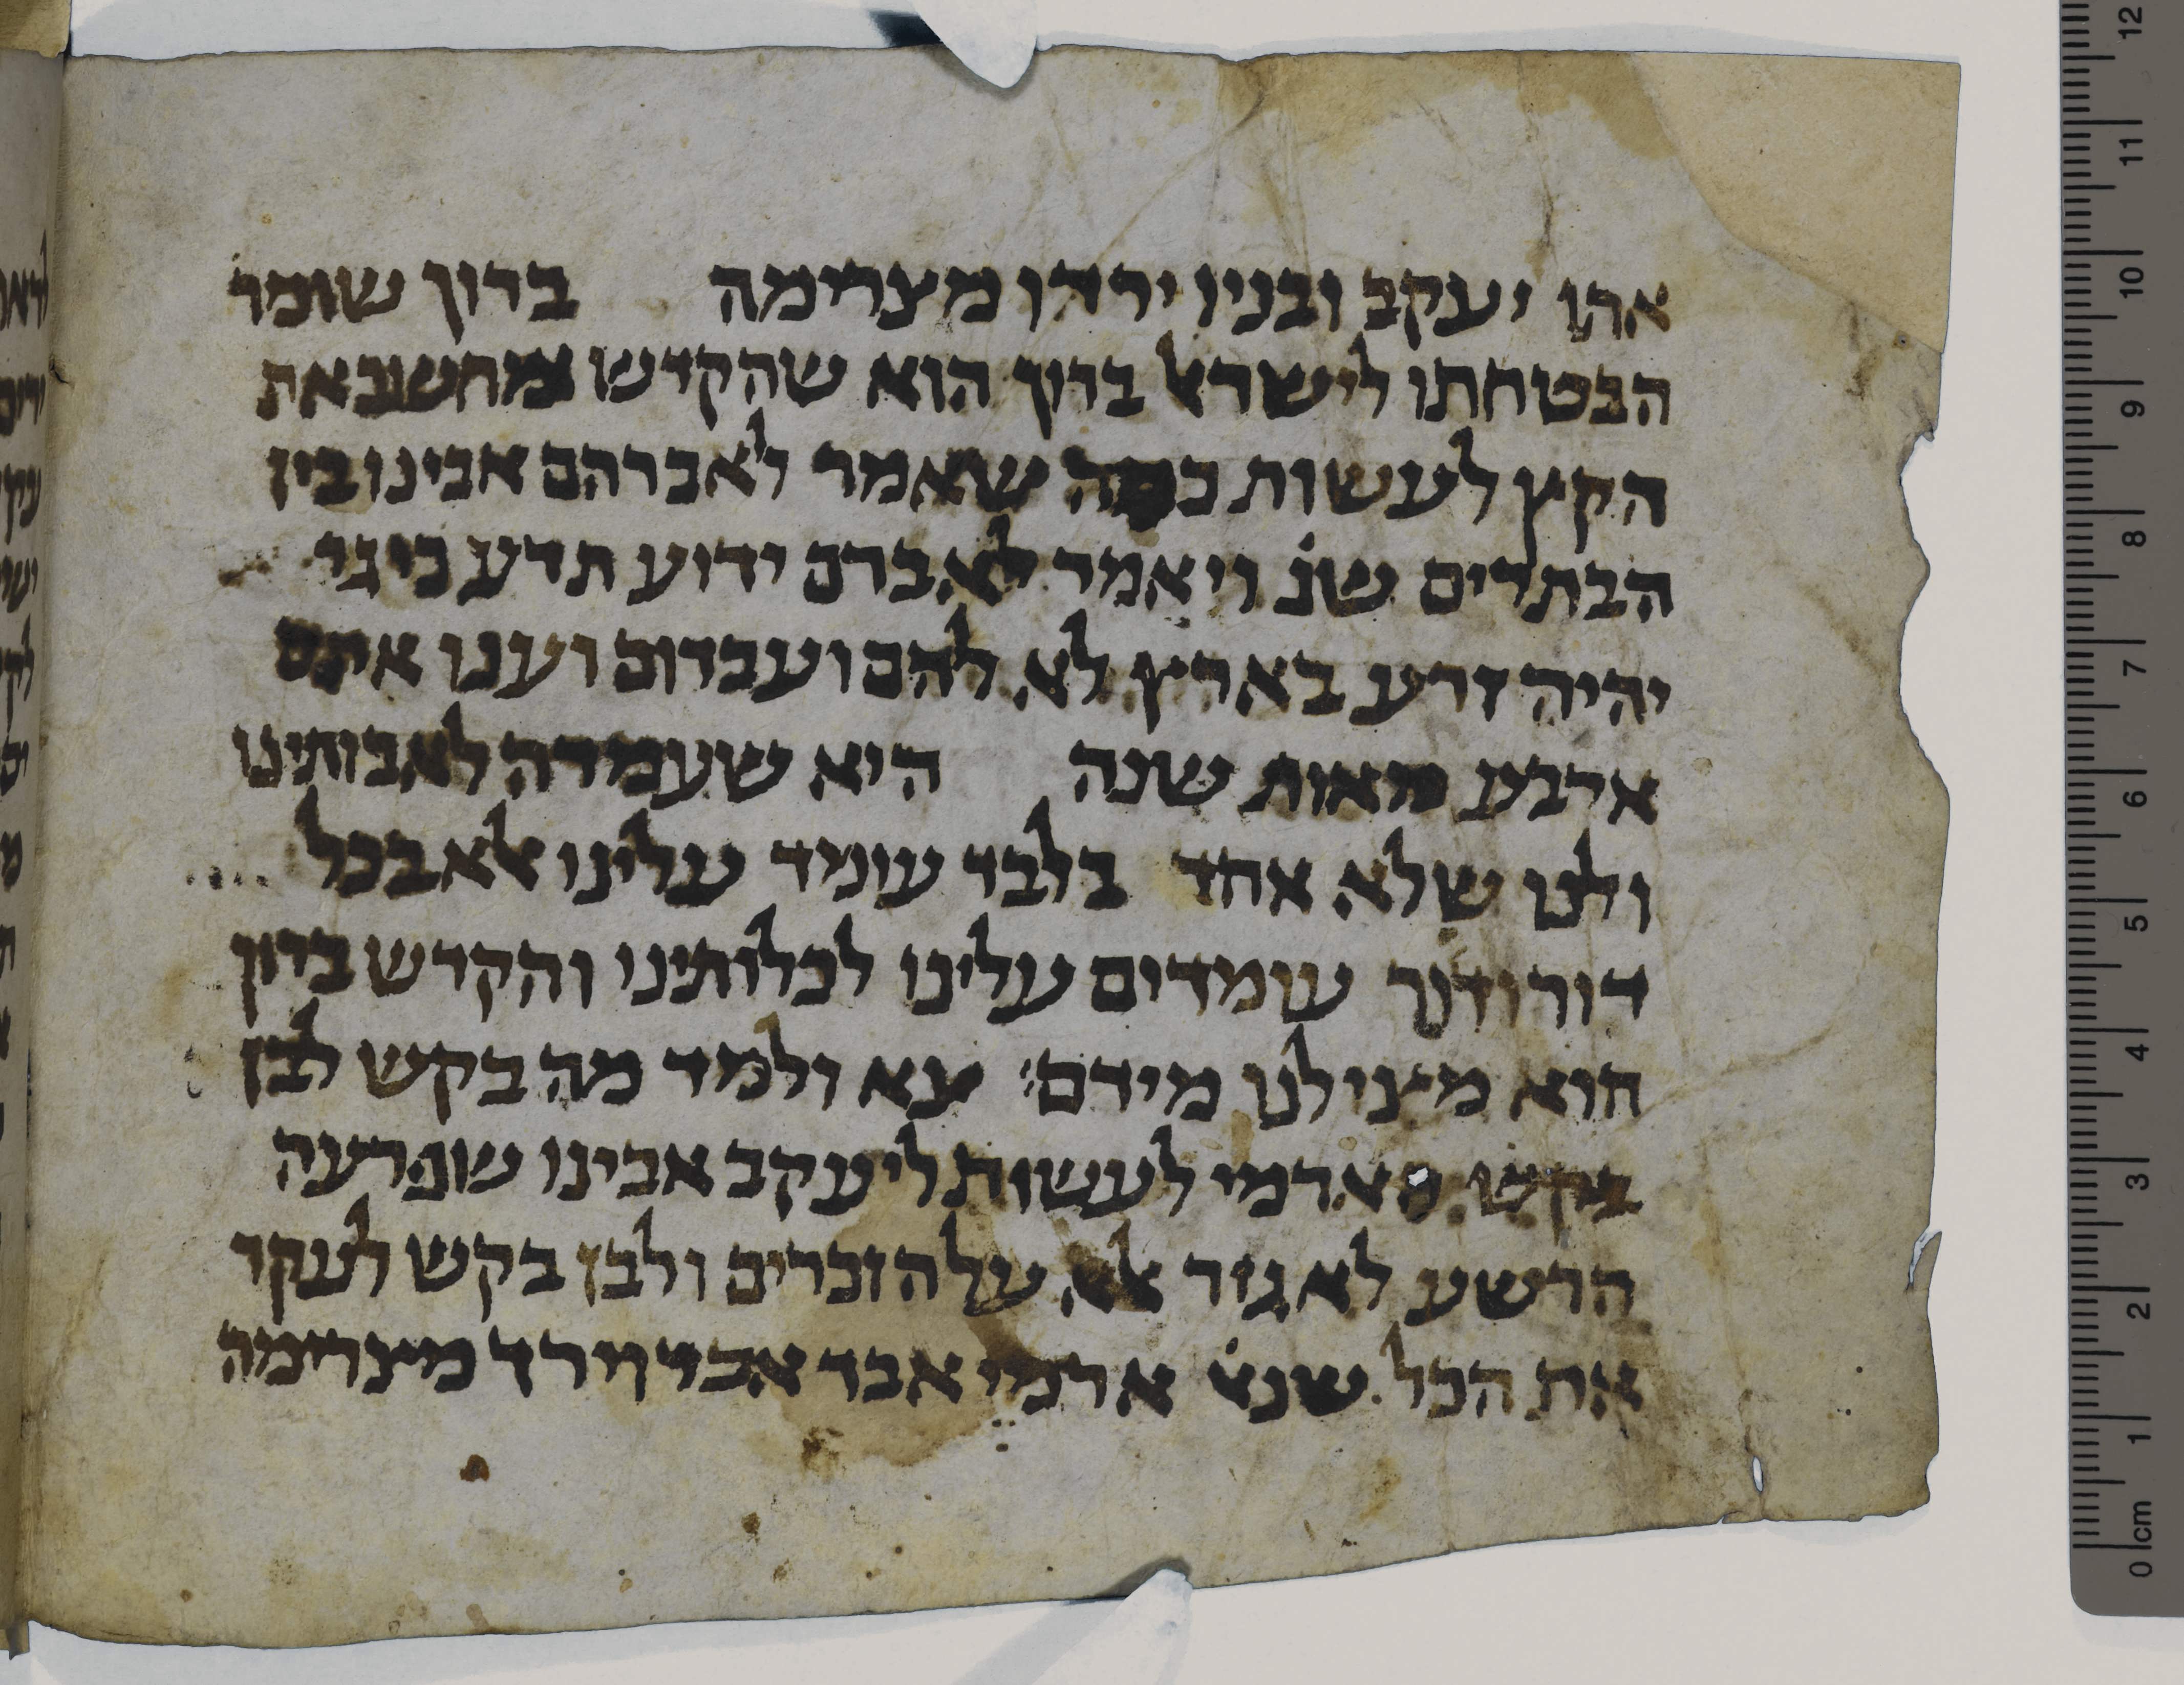 אתו יעקב ובניו ירדו מצרימה ברוך שומר
הבטחתו לישראל ברוך הוא שהקדש מחשב את
הקץ לעשות כמה שאמר לאברהם אבינו בין
הבתרים שנ ויאמר לאברם ידוע תדע כי גר
יהיה זרע בארץ לא להם ועבדום וענו אתם
ארבע מאות שנה היא שעמדה לאבותינו
ולנו שלא אחד בלבד עומד עלינו אלא בכל
דור ודור עומדים עלינו לכלותינו והקדש ברוך
הוא מצילנו מידם צא ולמד מה בקש לבן
בקש הארמי לעשות ליעקב אבינו שפרעה
הרשע לא גזר אלא על הזכרים ולבן בקש לעקר
את הכל שנא ארמי אבד אבי וירד מצרימה